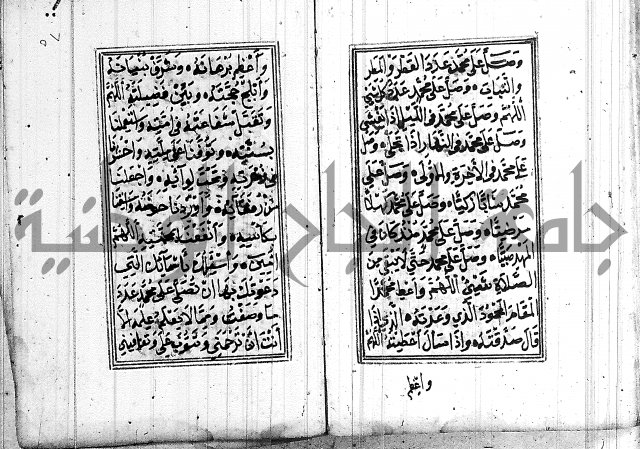 وصل على محمد عدد القطر والمطر
والنبات وصل على محمد عدد كل شيء
اللهم وصل على محمد في الليل اذا يغشى
وصل على محمد في النهار اذا تجلى وصل
على محمد في الآخرة والاولى وصل على
محمد شابا زكيا وصل على محمد كهلا
مرضيا وصل على محمد منذ كان في
المهد صبيا وصل على محمد حتى لا يبقى من
الصلاة شيء اللهم واعط محمدا
المقام المحمود الذي وعدته الذي اذا
قال صدقته واذا سأل اعطيته اللهم
واعظم
وأعظم برهانه وشرف بنيانه
وأبلج حجته وبين فضيلته اللهم
وتقبل شفاعته في امته واستعملنا
بسنته وتوفنا على ملته واحشرنا
في زمرته وتحت لوائه واجعلنا
من رفقائه وأوردنا حوضه واسقنا
بكأسه وانفعنا بمحبته اللهم
آمين وأسألك بأسمائك التي
دعوتك بها ان تصلي على محمد عدد
ما وصفت ومما لا يعلم علمه إلا
أنت ان ترحمني وتتوب علي وتعافيني
جامعة النجاح الوطنية